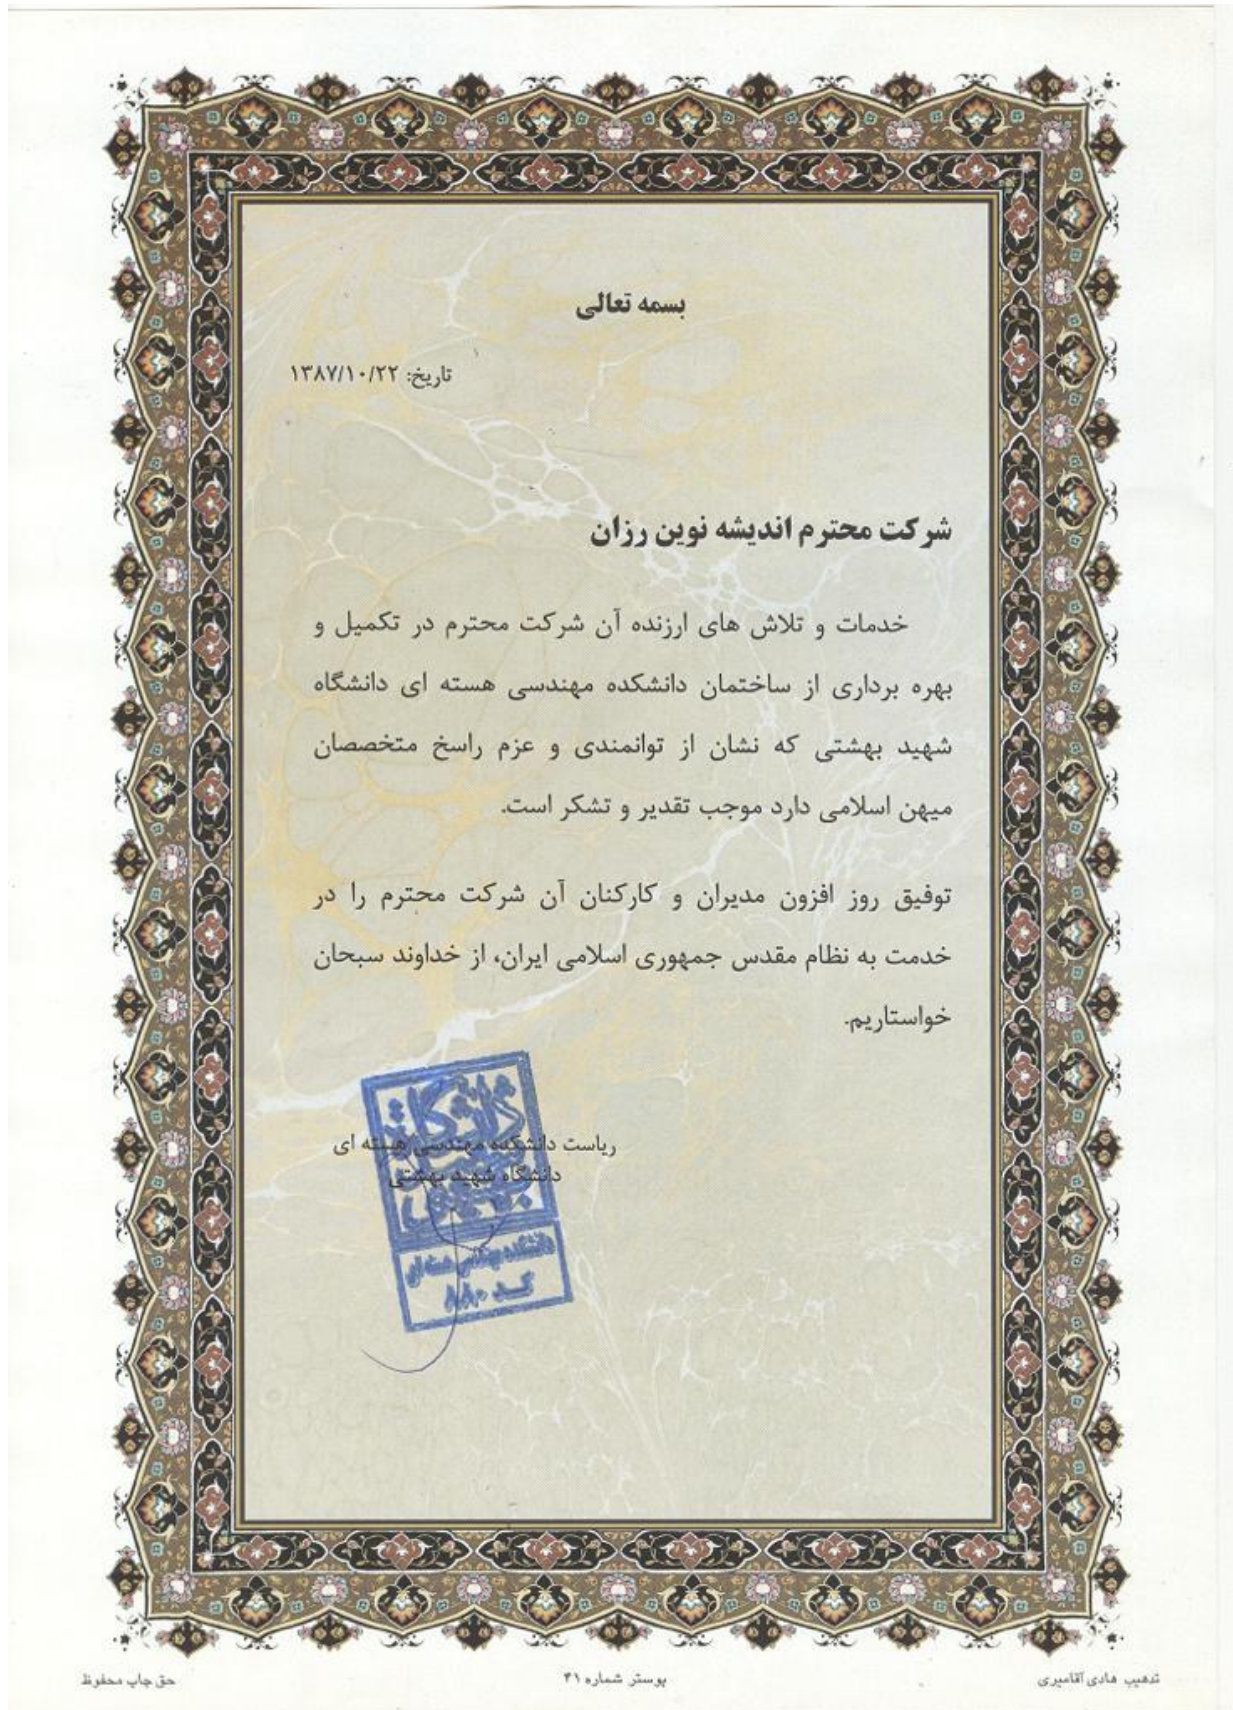 بسمه تعالی
تاریخ: ۱۳۸۷/۱۰/۲۲
شرکت محترم اندیشه نوین رزان
خدمات و تلاش های ارزنده آن شرکت محترم در تکمیل و
بهره برداری از ساختمان دانشکده مهندسی هسته ای دانشگاه
شهید بهشتی که نشان از توانمندی و عزم راسخ متخصصان
میهن اسلامی دارد موجب تقدیر و تشکر است.
توفیق روز افزون مدیران و کارکنان آن شرکت محترم را در
خدمت به نظام مقدس جمهوری اسلامی ایران، از خداوند سبحان
خواستاریم.
ریاست دانشکده مهندسی هسته ای
دانشگاه شهید بهشتی
دانشگاه
شهید
بهشتی
دانشکده مهندسی هسته ای
کد ۸۸۰
تذهیب هادی آقامیری
پوستر شماره ۴۱
حق چاپ محفوظ